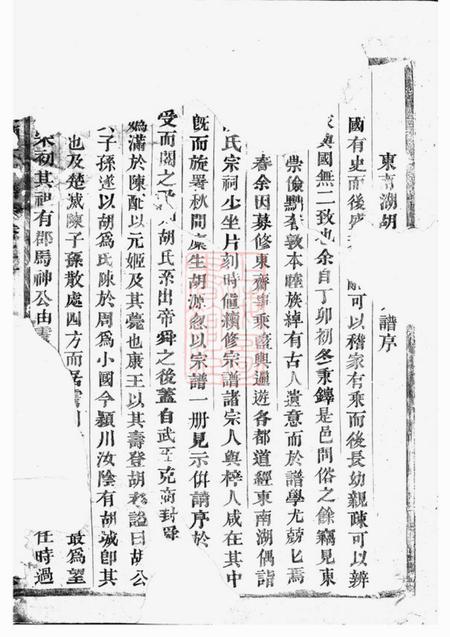 東南湖胡 譜序
國有史而後 可以稽家有乘而後長幼親疎可以辨
與國無二致也余自丁卯初冬秉鐸是邑問俗之餘竊見東
崇儉黜奢敦本睦族綽有古人遺意而於譜學尤兢匕焉
春余因募修東齋事乘盛興遍遊各都道經東南湖偶詣
氏宗祠少坐片刻時值續修宗譜諸宗人與梓人咸在其中
既而旋署秋間 生胡源忽以宗譜一册見示倂請序於
受而閱之 胡氏系出帝舜之後蓋自武王克商封
嬀滿於陳配以元姬及其薨也康王以其壽登胡耉諡曰胡公
子孫遂以胡爲氏陳於周爲小國今潁川汝陰有胡城卽其
也及楚滅陳子孫散處四方而居 最爲望
宋初其祖有郡馬神公由 任時過